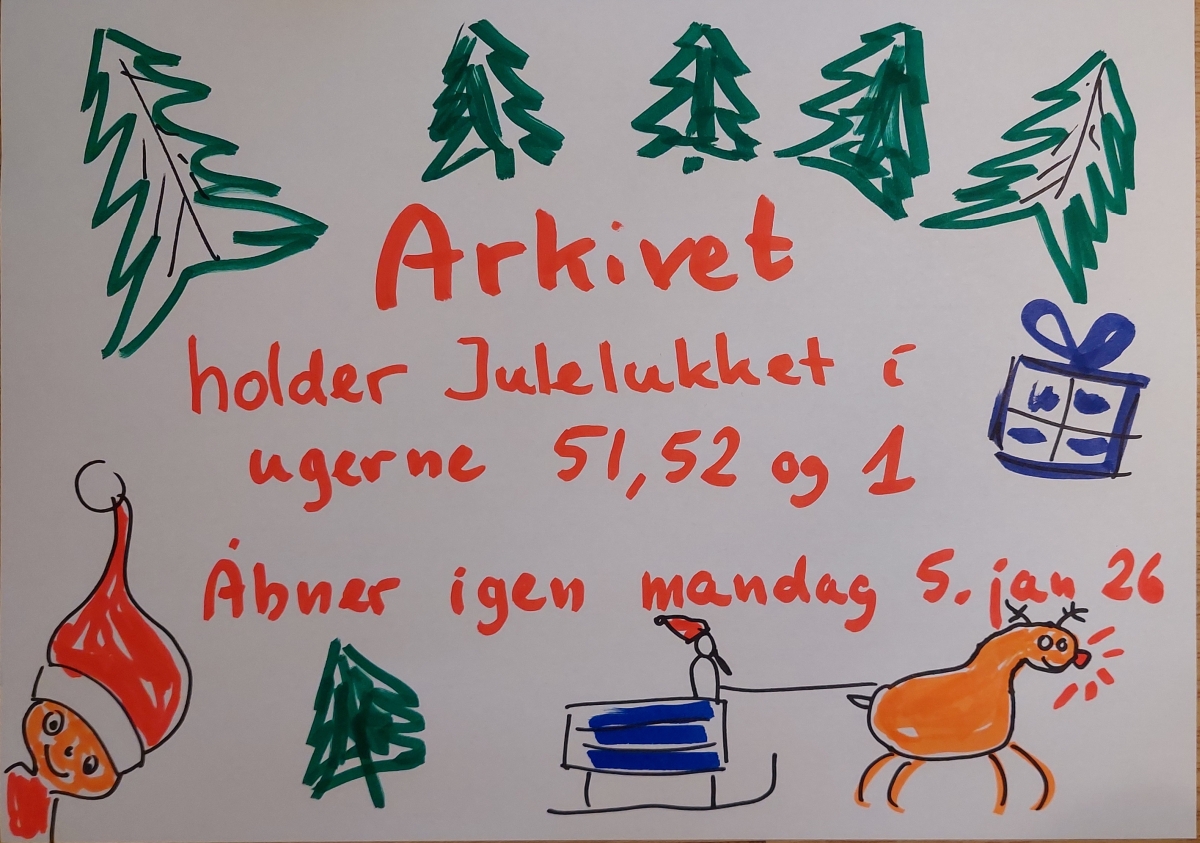 Arkivet
holder Julelukket i
ugerne 51, 52 og 1
Åbner igen mandag 5. jan 26